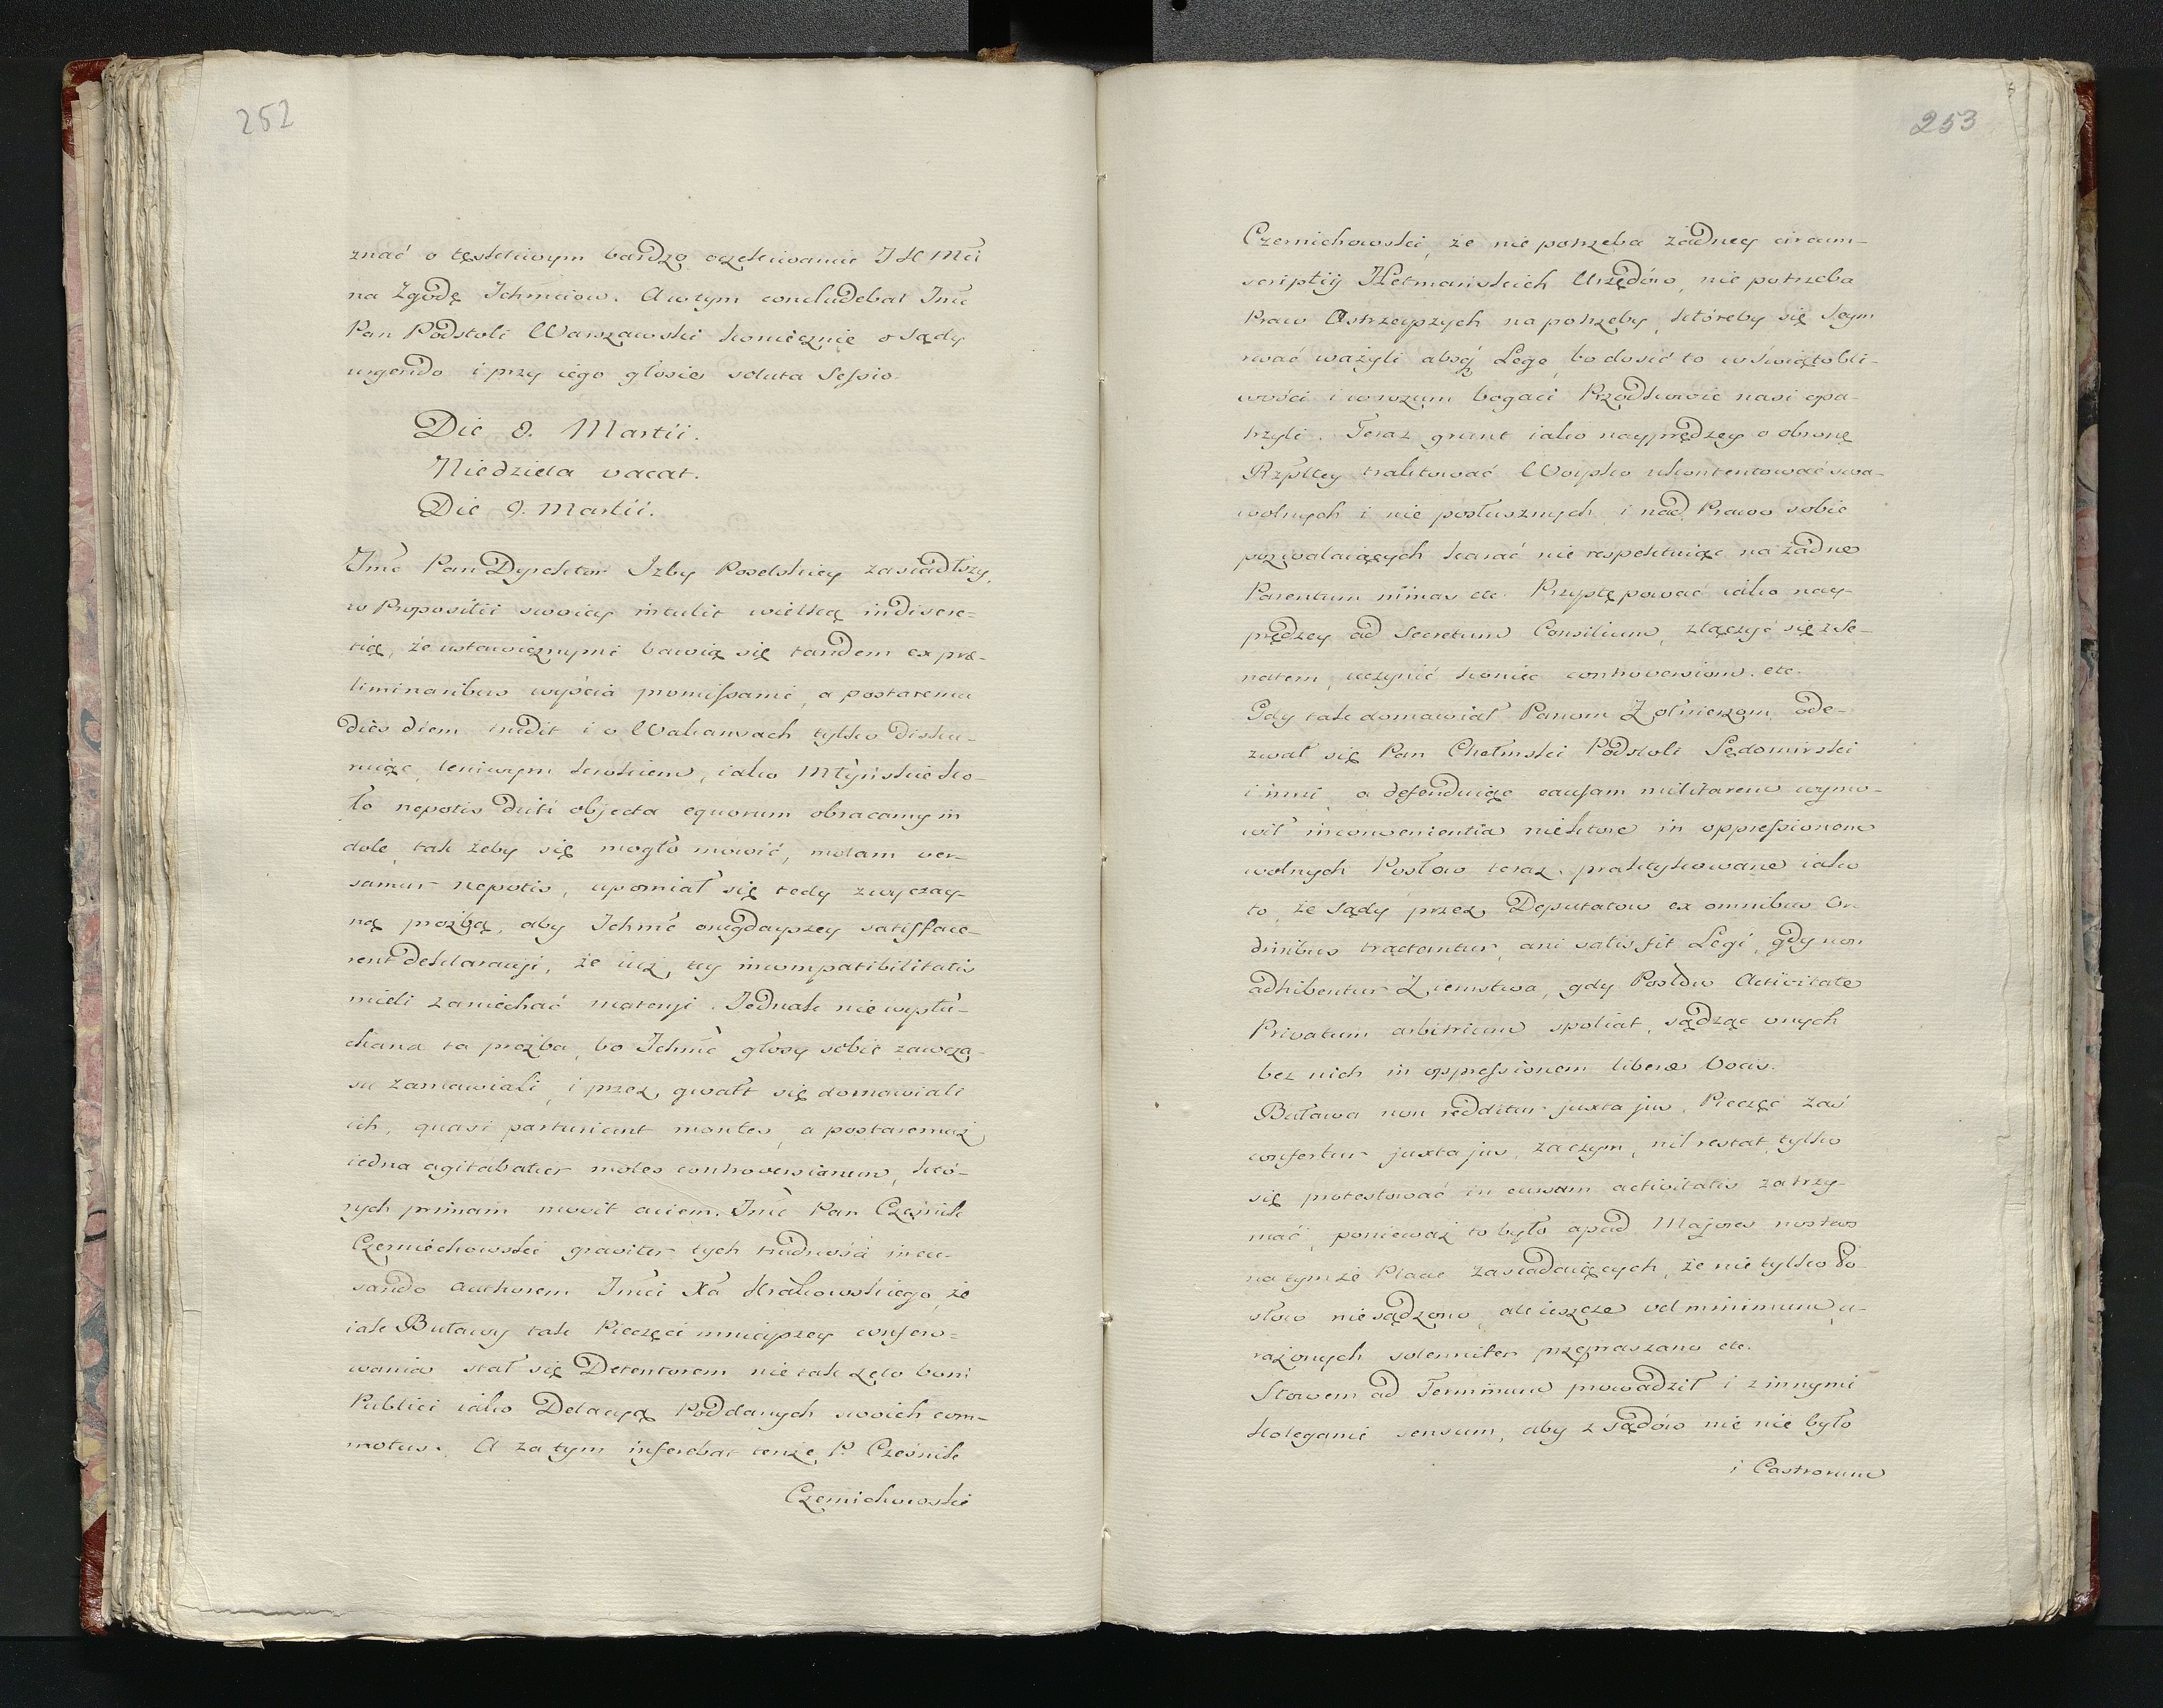 252
znać o tęskliwym bardzo oczekiwaniu JKMci
na Zgodę Ichmciow. A wtym concludebat Jmć
Pan Podstoli Warszawski koniecznie o Sądy
urgendo i przy iego głosie soluta Sessio.
Die 8. Martii.
Niedziela vacat.
Die 9. Martii.
Jmć Pan Dyrektor Izby Poselskiey zasiadłszy,
w Propositii swoiey intulit wielką indiscre-
tię, że ustawicznymi bawią się tandem ex præ-
liminaribus wyścia promissami, a postaremu
dies diem trudit i o Wakansach tylko dysku-
ruiąc, leniwym krokiem, iako Młyńskie ko-
ło nepotis duti objecta equorum obracamy in
dole, tak żeby się mogło mowić, molam ver-
samur nepotis, upomniał się tedy zwyczay-
ną proźbą, aby Ichmć onegdayszey satisface-
rent deklaracyi, że iuż tey incompatibilitatis
mieli zaniechać materyi. Jednak nie wysłu-
chana ta proźba, bo Ichmć głosy sobie zawcza-
su zamawiali, i przez gwałt się domawiali
ich, quasi parturient montes, a postaremuż
iedna agitabatur moles controversiarum, któ-
rych primam movit aciem. Jmć Pan Cześnik
Czerniechowski graviter tych trudności incu-
sando Authorem Jmci Xa Krakowskiego, że
iak Buławy tak Pieczęci mnieyszey confero-
wania stał się Detentorem nie tak zelo boni
Publici iako Delacyą Poddanych swoich com-
motus. A za tym inferebat tenże P. Cześnik
Czernichowski
253
Czernichowski, że nie potrzeba żadney circum-
scriptij Hetmańskich Urzędów, nie potrzeba
Praw Ostrzeyszych na potrzeby, któreby się Seym
rwać ważyli absq Lege, bo dosić to w świątobli-
wości i w rozum bogaci Przodkowie nasi opa-
trzyli. Teraz grunt iako nayprędzey o obronę
Rzpltey traktować Woysko ukontentować swa-
wolnych i nie posłusznych, i nad Prawo sobie
pozwalaiących karać nie respektuiąc na żadne
Parentum minas etc. Przystępować iako nay-
prędzey ad Secretum Consilium, złączyć się z Se-
natem, uczynić koniec controversiom. etc.
Gdy tak domawiał Panom Żołnierzom, ode-
zwał się Pan Chełmski Podstoli Sędomirski
i inni, a defenduiąc causam militarem wymo-
wił inconvenientia niektore in oppressionem
wolnych Posłow teraz praktykowane iako
to, że Sądy przez Deputatow ex omnibus Or-
dinibus tractantur, ani satis fit Legi, gdy non
adhibentur Ziemstwa, gdy Posłow Activitate
Privatum arbitrium spoliat, sądząc onych
bez nich in oppressionem liberæ Vocis.
Buława non redditur juxta jus, Pieczęć zaś
confertur juxta jus, zaczym, nil restat, tylko
się protestować in cursum activitatis zatrzy-
mać, ponieważ to było apud Majores nostros
na tymże Placu zasiadaiących, że nie tylko Po-
słow nie sądzono, ale ieszcze vel minimum u-
rażonych solenniter przepraszano etc.
Słowem ad Terminum prowadził i z innymi
Kolegami sensum, aby z sądów nic nie było
i Castrorum